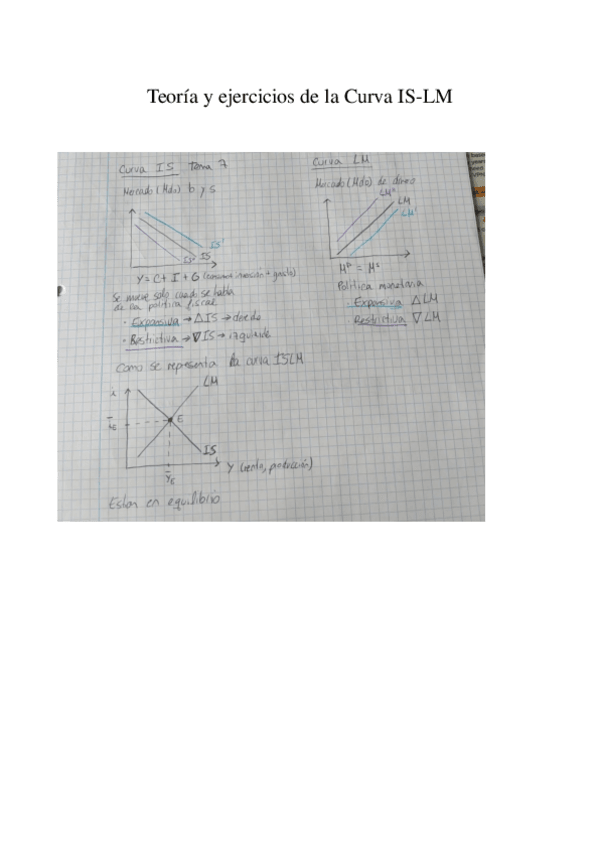 Teoría y ejercicios de la Curva IS-LM
Curva IS tema 7
Mercado (Mdo) b y s
IS'
IS'' IS
Y = C + I + G (consumo inversión + gasto)
Se mueve solo cuando se habla
de una política fiscal
· Expansiva → △IS → derecha
· Restrictiva → ▽IS → izquierda
Curva LM
Mercado (Mdo) de dinero
LM''
LM
LM'
Mᴰ = Mˢ
Política monetaria
· Expansiva △LM
Restrictiva ▽LM
Como se representa la curva ISLM
i
LM
E
IS
Y (renta, producción)
Y_E
Estan en equilibrio